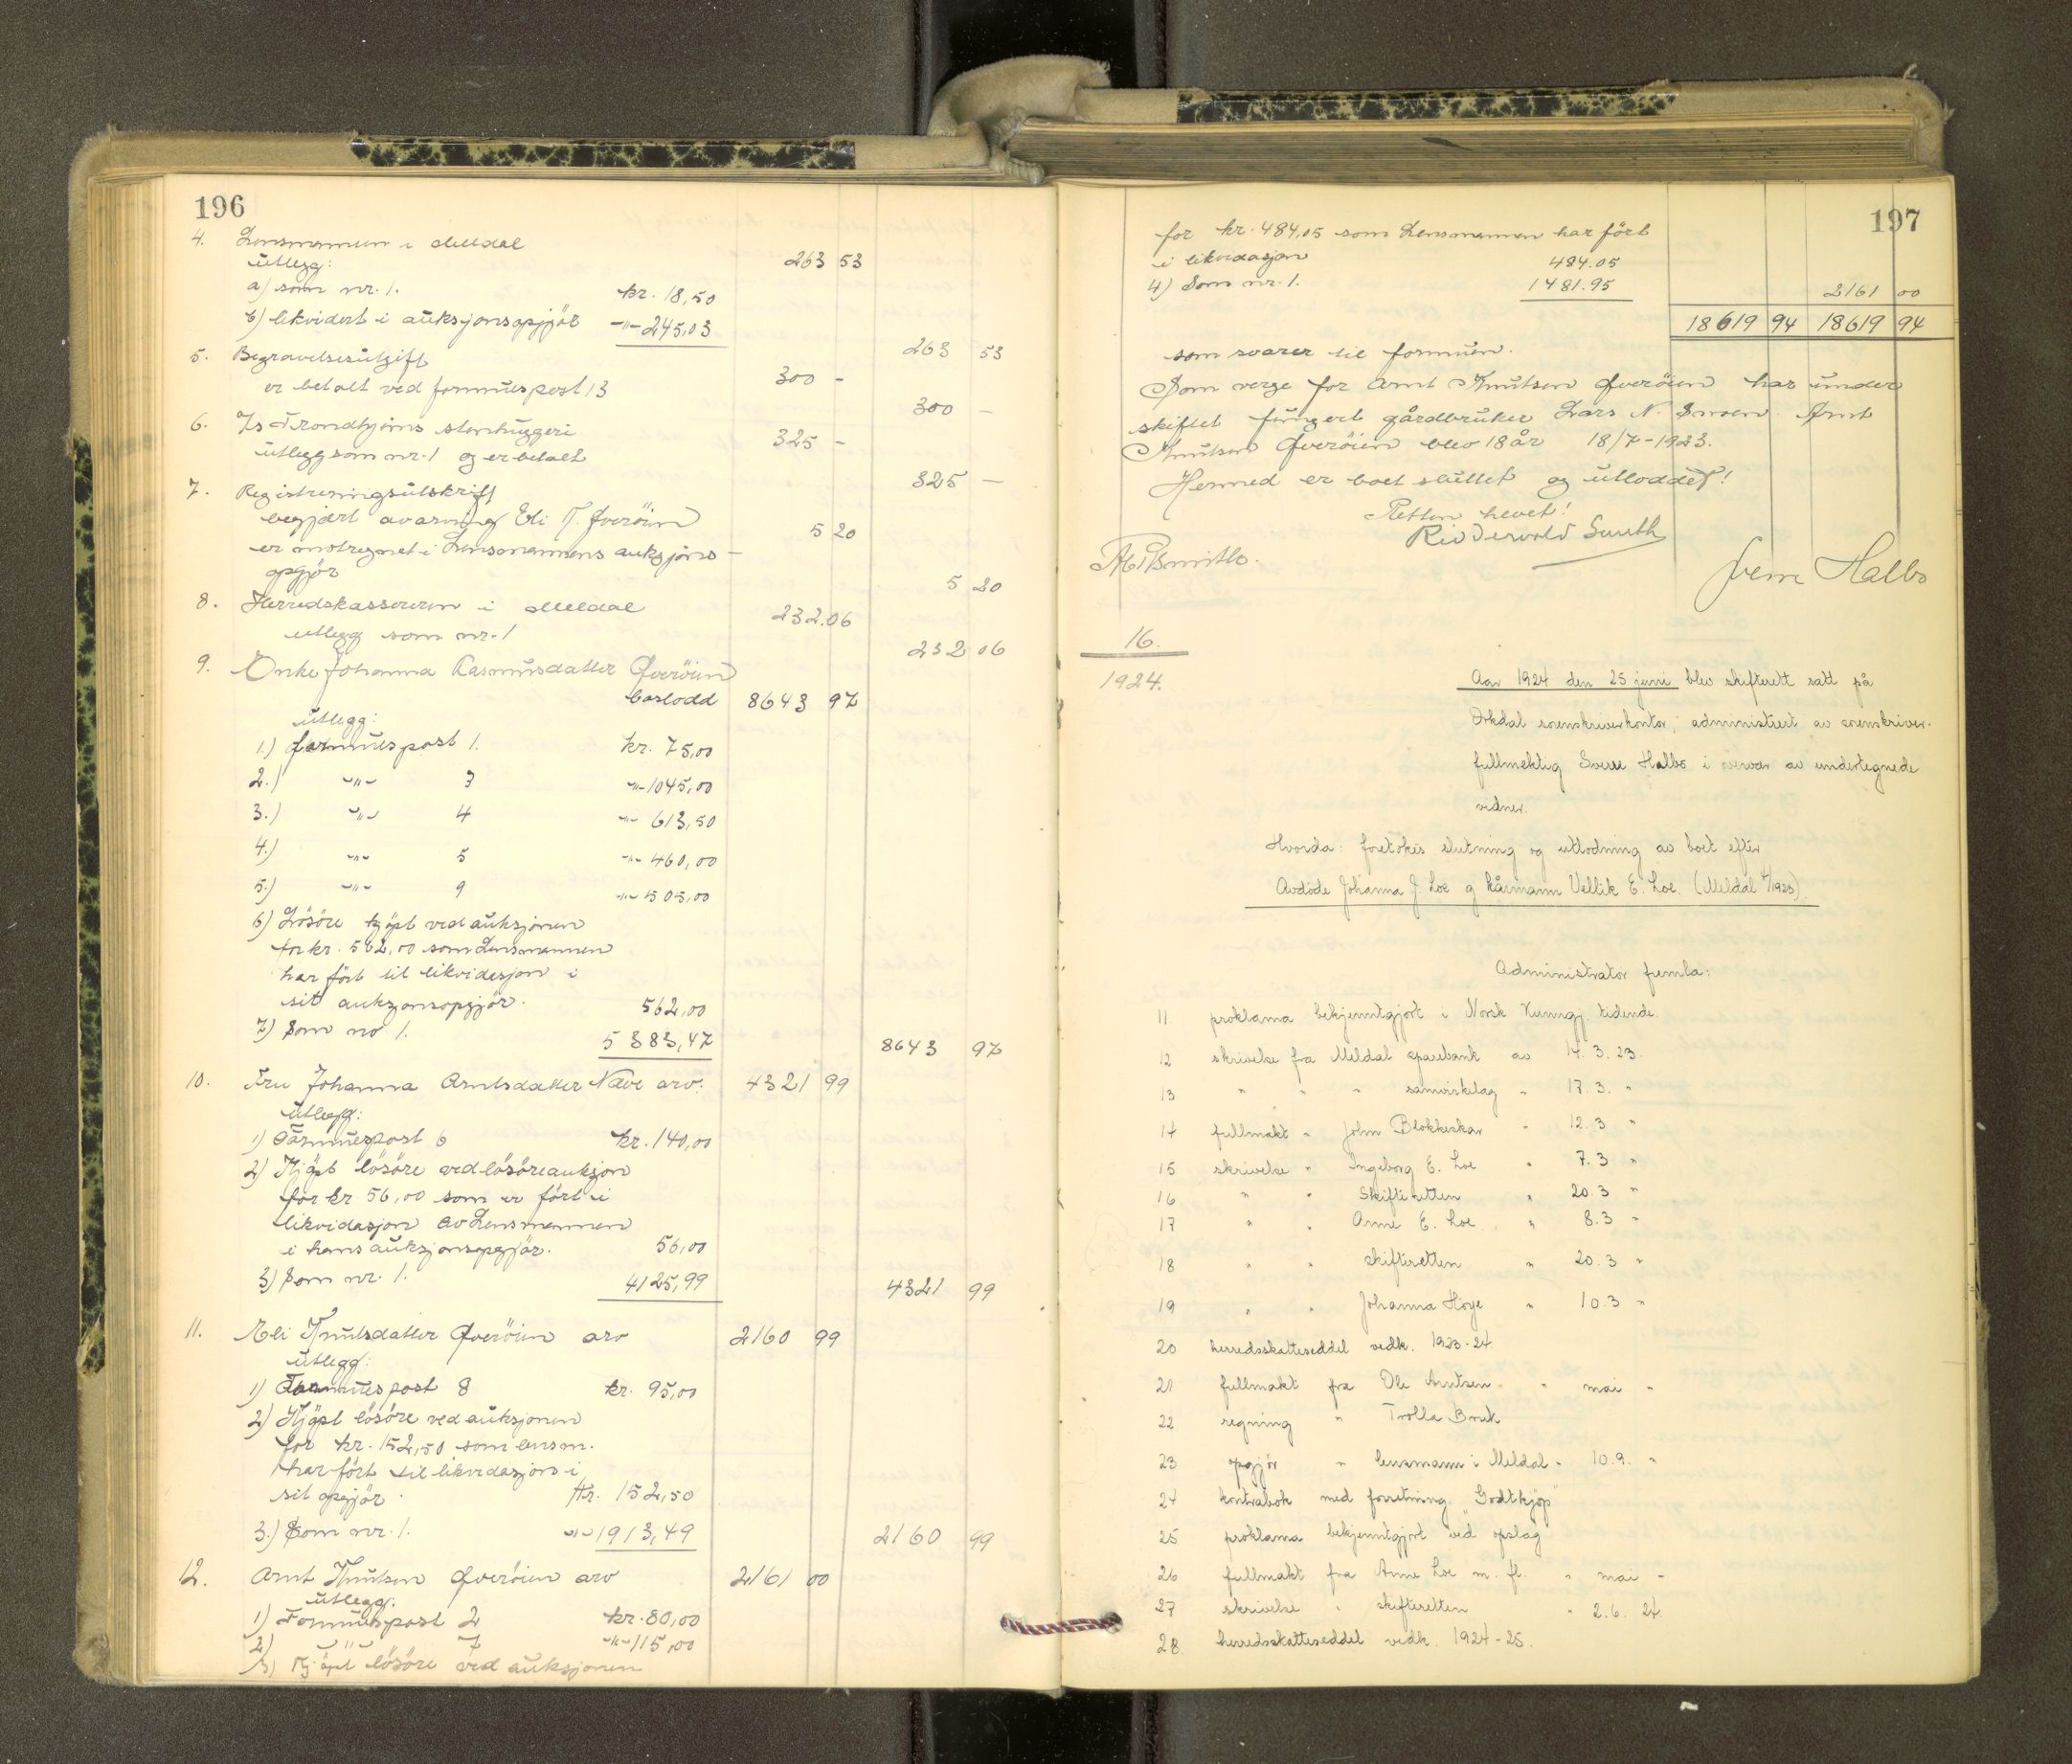 196
4. Lensmannen i Meldal
utlegg: 263 53
a) som nr. 1. kr. 18,50
b) likvidert i auksjonsopgjör -"- 245,03
263 53
5. Begravelsesutgift
er betalt ved formuespost 13 300 -
300 -
6. Trondhjems stenhuggeri 325 -
utlegg som nr. 1 og er betalt
325 -
7. Registreringsutskrift
begjært av arving Eli K. Qveröien 5 20
er motregnet i Lensmannens auksjons-
opgjör
5 20
8. Herredskassereren i Meldal 232.06
utlegg som nr. 1
232 06
9. Enke Johanna Rasmusdatter Qveröien
boslodd 8643 97
utlegg:
1.) formuespost 1. kr. 75,00
2.) -"- 3 -"- 1045,00
3.) -"- 4 -"- 613,50
4.) -"- 5 -"- 460,00
5.) -"- 9 -"- 505,00
6) Lösöre kjöpt ved auksjonen
for kr. 562,00 som Lensmannen
har fört til likvidasjon i
sit auksjonsopgjör. 562,00
7) Som no 1. 5383,47 8643 97
10. Fru Johanna Arntsdatter Nave arv. 4321 99
utlegg:
1) Formuespost 6 kr. 140,00
2) Kjöpt lösöre ved lösöreauksjon
for kr 56,00 som er fört i
likvidasjon av Lensmannen
i hans auksjonsopgjör. 56,00
3) Som nr. 1. 4125,99 4321 99
11. Eli Knutsdatter Qveröien arv 2160 99
utlegg:
1) Formuespost 8 kr. 95,00
2) Kjöpt lösöre ved auksjonen
for kr. 152,50 som lensm.
har fört til likvidasjon i
sit opgjör. Kr. 152,50
3.) Som nr. 1. -"- 1913,49 2160 99
12. Arnt Knutsen Qveröien arv 2161 00
utlegg:
1) Formuespost 2 kr. 80,00
2) -"- 7 -"- 115,00
3) Kjöpt lösöre ved auksjonen
197
for kr. 484,05 som Lensmannen har fört
i likvidasjon 484.05
4) Som nr. 1. 1481.95 2161 00
18619 94 18619 94
som svarer til formuen.
Som verge for Arnt Knutsen Qveröien har under
skiftet fungert gårdbruker Lars N. Snoen. Arnt
Knutsen Qveröien blev 18 år 18/7-1923.
Hermed er boet sluttet og utloddet!
Retten hevet!
Ridderwold Smith
Sverre Halbo
16.
1924.
Aar 1924 den 25 juni blev skifterett satt på
Orkdal sorenskriverkontor, administrert av sorenskriver-
fullmektig Sverre Halbo i nærvær av undertegnede
vidner.
Hvorda: foretokes slutning og utlodning av boet efter
Avdöde Johanna J. Loe og kårmann Vellik E. Loe. (Meldal /1923).
Administrator fremla:
11 proklama bekjenntgjort i Norsk Kunngj. tidende.
12 skrivelse fra Meldal sparebank av 14. 3. 23.
13 " " " samvirkelag " 17. 3. "
14 fullmakt " John Blokkeskar " 12. 3 "
15 skrivelse " Ingeborg E. Loe " 7. 3 "
16 " " Skifteretten " 20. 3 "
17 " " Anne E. Loe " 8. 3 "
18 " " skifteretten " 20. 3 "
19 " " Johanna Höge " 10. 3 "
20 herredsskatteseddel vedk. 1923-24
21 fullmakt fra Ole Arntsen " mai "
22 regning " Trolla Bruk
23 opgjör " lensmann i Meldal " 10. 9. "
24 kontrabok med forretning "Godtkjöp"
25 proklama bekjenntgjort ved opslag
26 fullmakt fra Anne Loe m. fl. " mai -
27 skrivelse " skifteretten " 2. 6. 24.
28. herredsskatteseddel vedk. 1924-25.